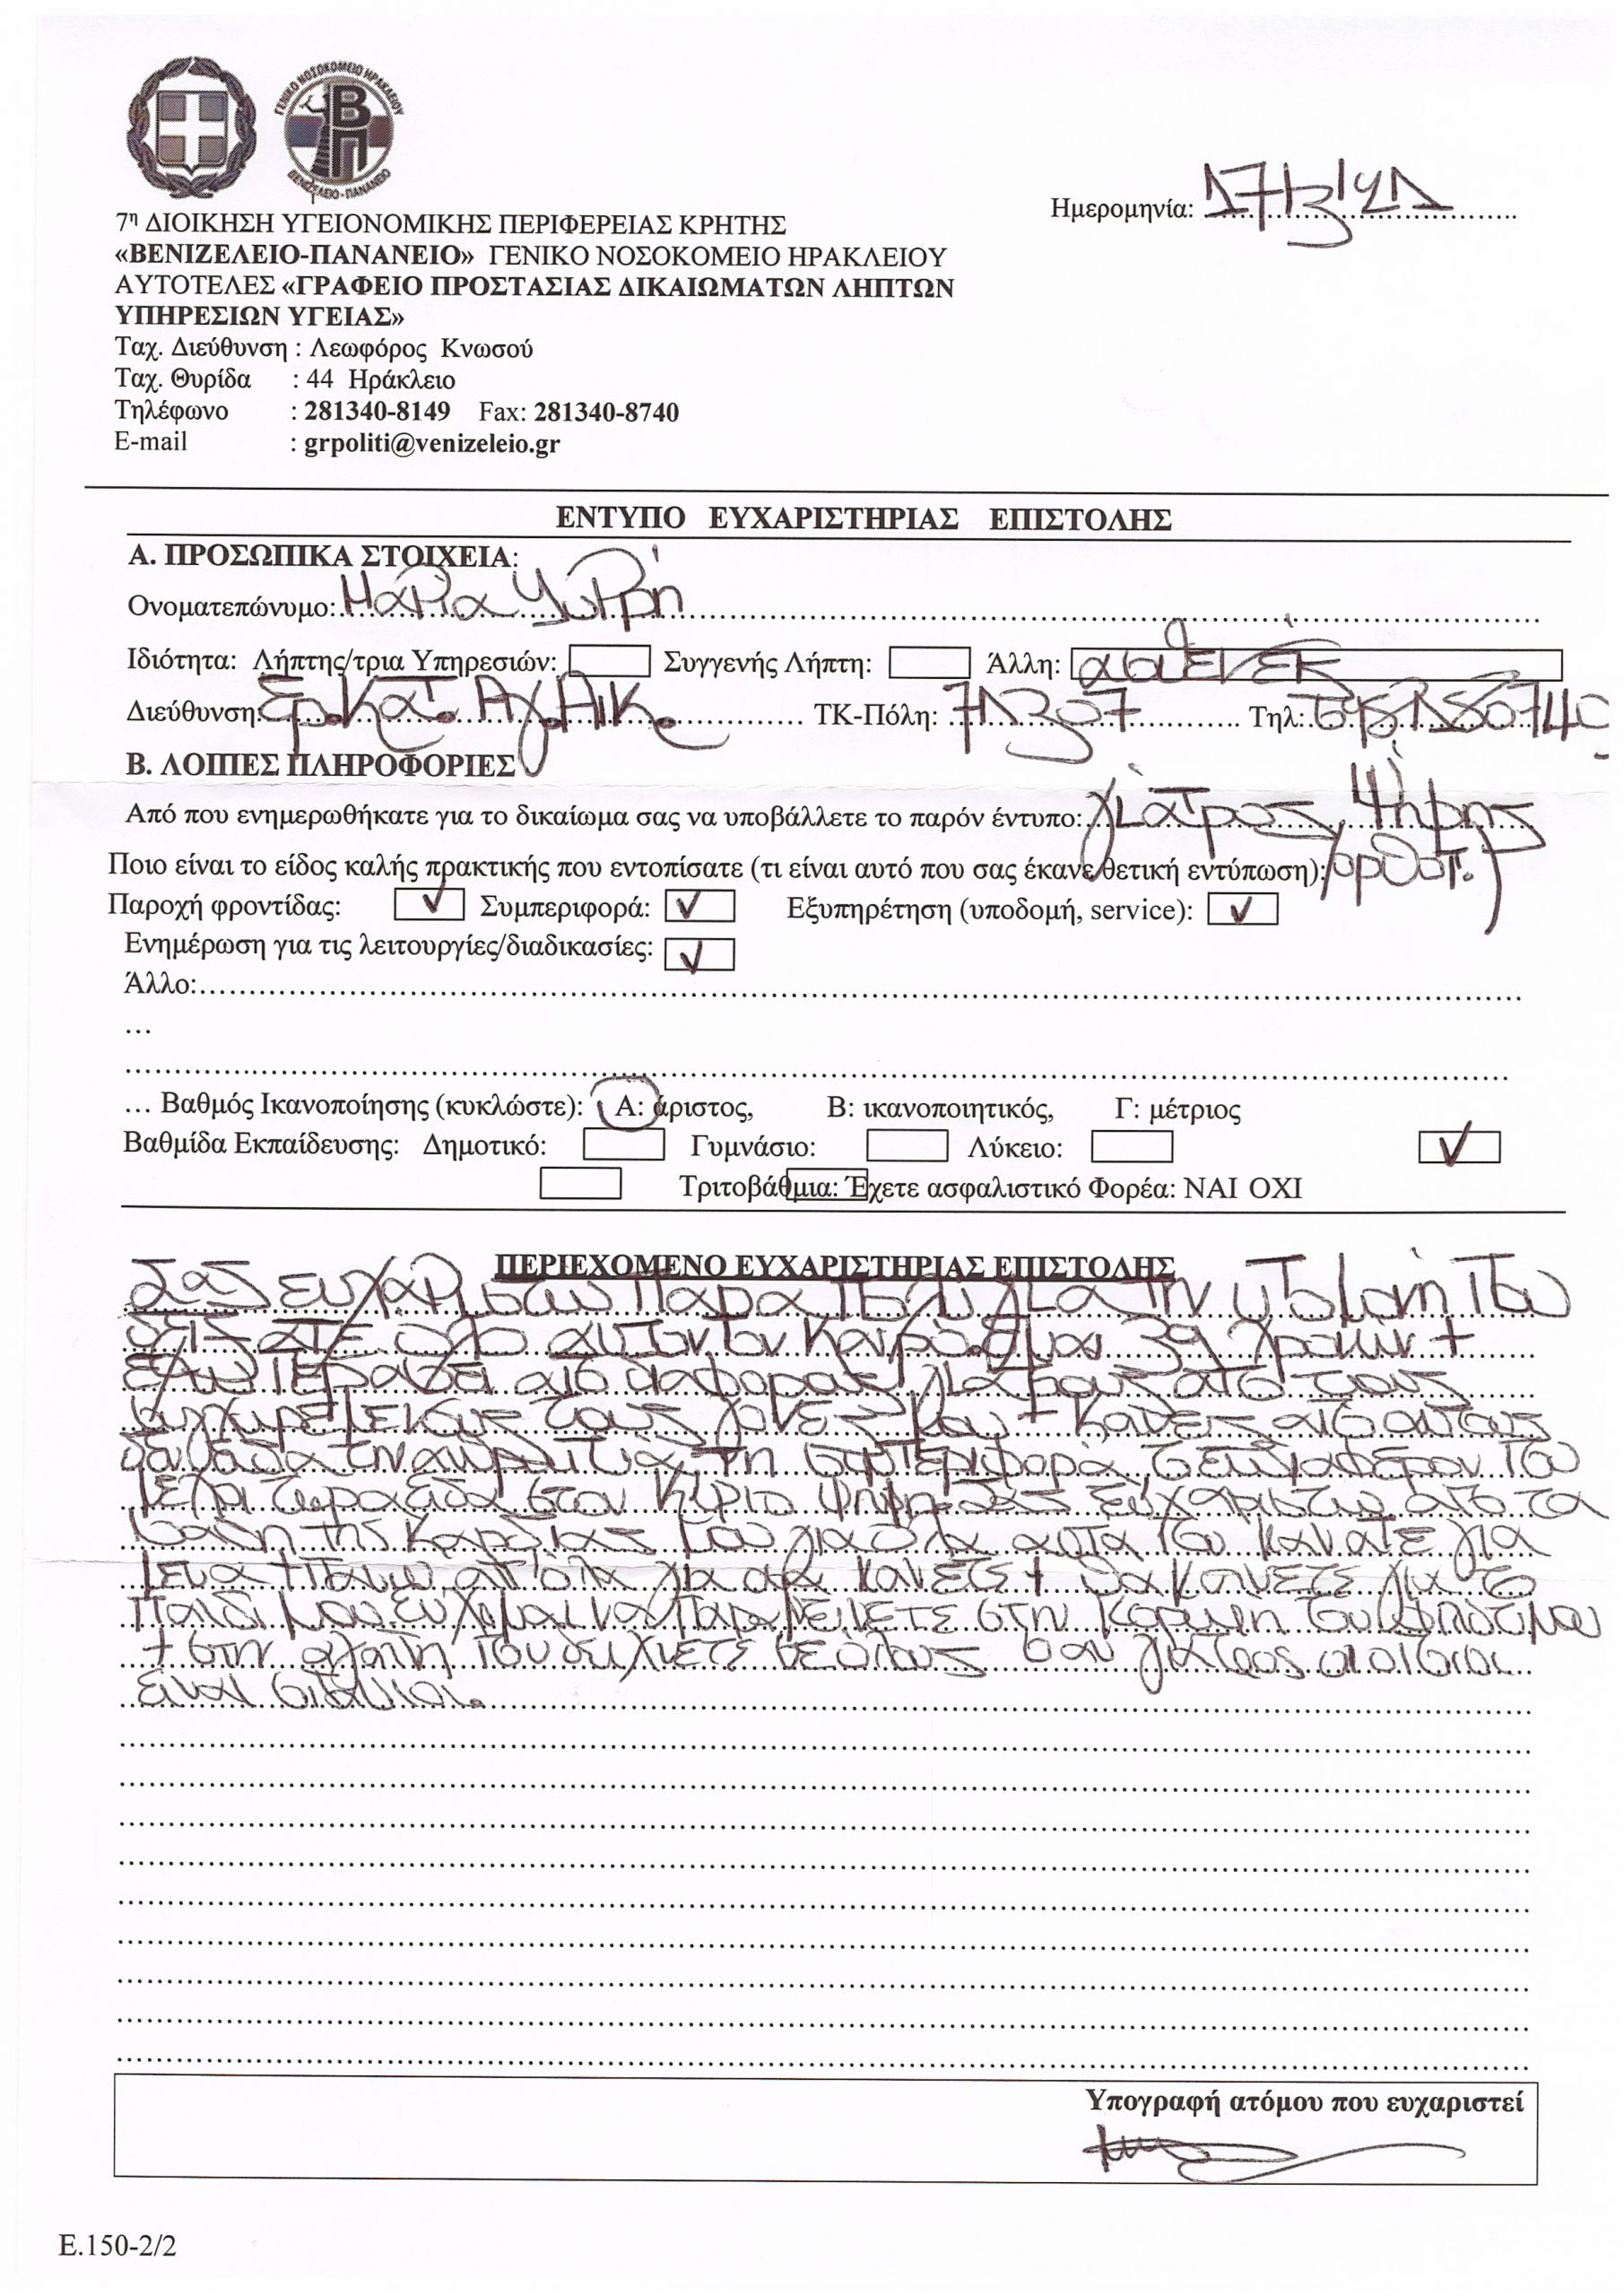 ΓΕΝΙΚΟ ΝΟΣΟΚΟΜΕΙΟ ΗΡΑΚΛΕΙΟΥ
ΒΠ
ΒΕΝΙΖΕΛΕΙΟ - ΠΑΝΑΝΕΙΟ
Ημερομηνία: 17/3/21
7η ΔΙΟΙΚΗΣΗ ΥΓΕΙΟΝΟΜΙΚΗΣ ΠΕΡΙΦΕΡΕΙΑΣ ΚΡΗΤΗΣ
«ΒΕΝΙΖΕΛΕΙΟ-ΠΑΝΑΝΕΙΟ» ΓΕΝΙΚΟ ΝΟΣΟΚΟΜΕΙΟ ΗΡΑΚΛΕΙΟΥ
ΑΥΤΟΤΕΛΕΣ «ΓΡΑΦΕΙΟ ΠΡΟΣΤΑΣΙΑΣ ΔΙΚΑΙΩΜΑΤΩΝ ΛΗΠΤΩΝ
ΥΠΗΡΕΣΙΩΝ ΥΓΕΙΑΣ»
Ταχ. Διεύθυνση : Λεωφόρος Κνωσού
Ταχ. Θυρίδα : 44 Ηράκλειο
Τηλέφωνο : 281340-8149 Fax: 281340-8740
E-mail : grpoliti@venizeleio.gr
ΕΝΤΥΠΟ ΕΥΧΑΡΙΣΤΗΡΙΑΣ ΕΠΙΣΤΟΛΗΣ
Α. ΠΡΟΣΩΠΙΚΑ ΣΤΟΙΧΕΙΑ:
Ονοματεπώνυμο: Μαρία
Ιδιότητα: Λήπτης/τρια Υπηρεσιών: Συγγενής Λήπτη: Άλλη:
Διεύθυνση: ΤΚ-Πόλη: 71307 Τηλ:
Β. ΛΟΙΠΕΣ ΠΛΗΡΟΦΟΡΙΕΣ
Από που ενημερωθήκατε για το δικαίωμα σας να υποβάλλετε το παρόν έντυπο: γιατρος, Ψηφης
Ποιο είναι το είδος καλής πρακτικής που εντοπίσατε (τι είναι αυτό που σας έκανε θετική εντύπωση): ορθοπ.
Παροχή φροντίδας: ✓ Συμπεριφορά: ✓ Εξυπηρέτηση (υποδομή, service): ✓
Ενημέρωση για τις λειτουργίες/διαδικασίες: ✓
Άλλο:
…
… Βαθμός Ικανοποίησης (κυκλώστε): Α: άριστος, Β: ικανοποιητικός, Γ: μέτριος
Βαθμίδα Εκπαίδευσης: Δημοτικό: Γυμνάσιο: Λύκειο: ✓
Τριτοβάθμια: Έχετε ασφαλιστικό Φορέα: ΝΑΙ ΟΧΙ
ΠΕΡΙΕΧΟΜΕΝΟ ΕΥΧΑΡΙΣΤΗΡΙΑΣ ΕΠΙΣΤΟΛΗΣ
Σας ευχαριστώ πάρα πολύ για την υπομονή που
δείξατε όλο αυτόν τον καιρό. Είμαι 39 χρονών +
έχω περάσει από διαφορους γιατρους από τους
τους γονεις μου + κανεις από αυτους
δεν είχε την τη συμπεριφορά, το ενδιαφέρον που
μέχρι τώρα είδα στον Κύριο Ψηφη. Σας ευχαριστώ από τα
βάθη της καρδιας μου για όλα αυτα που κανατε για
μενα + πάνω απ'όλα για οτι κανετε + θα κανετε για το
παιδι μου. Ευχομαι να παραμεινετε στην κορυφη του φιλότιμου
+ στην αγάπη που δείχνετε σε όλους σαν γιατρος οι
είναι σπάνιοι.
Υπογραφή ατόμου που ευχαριστεί
Ε.150-2/2